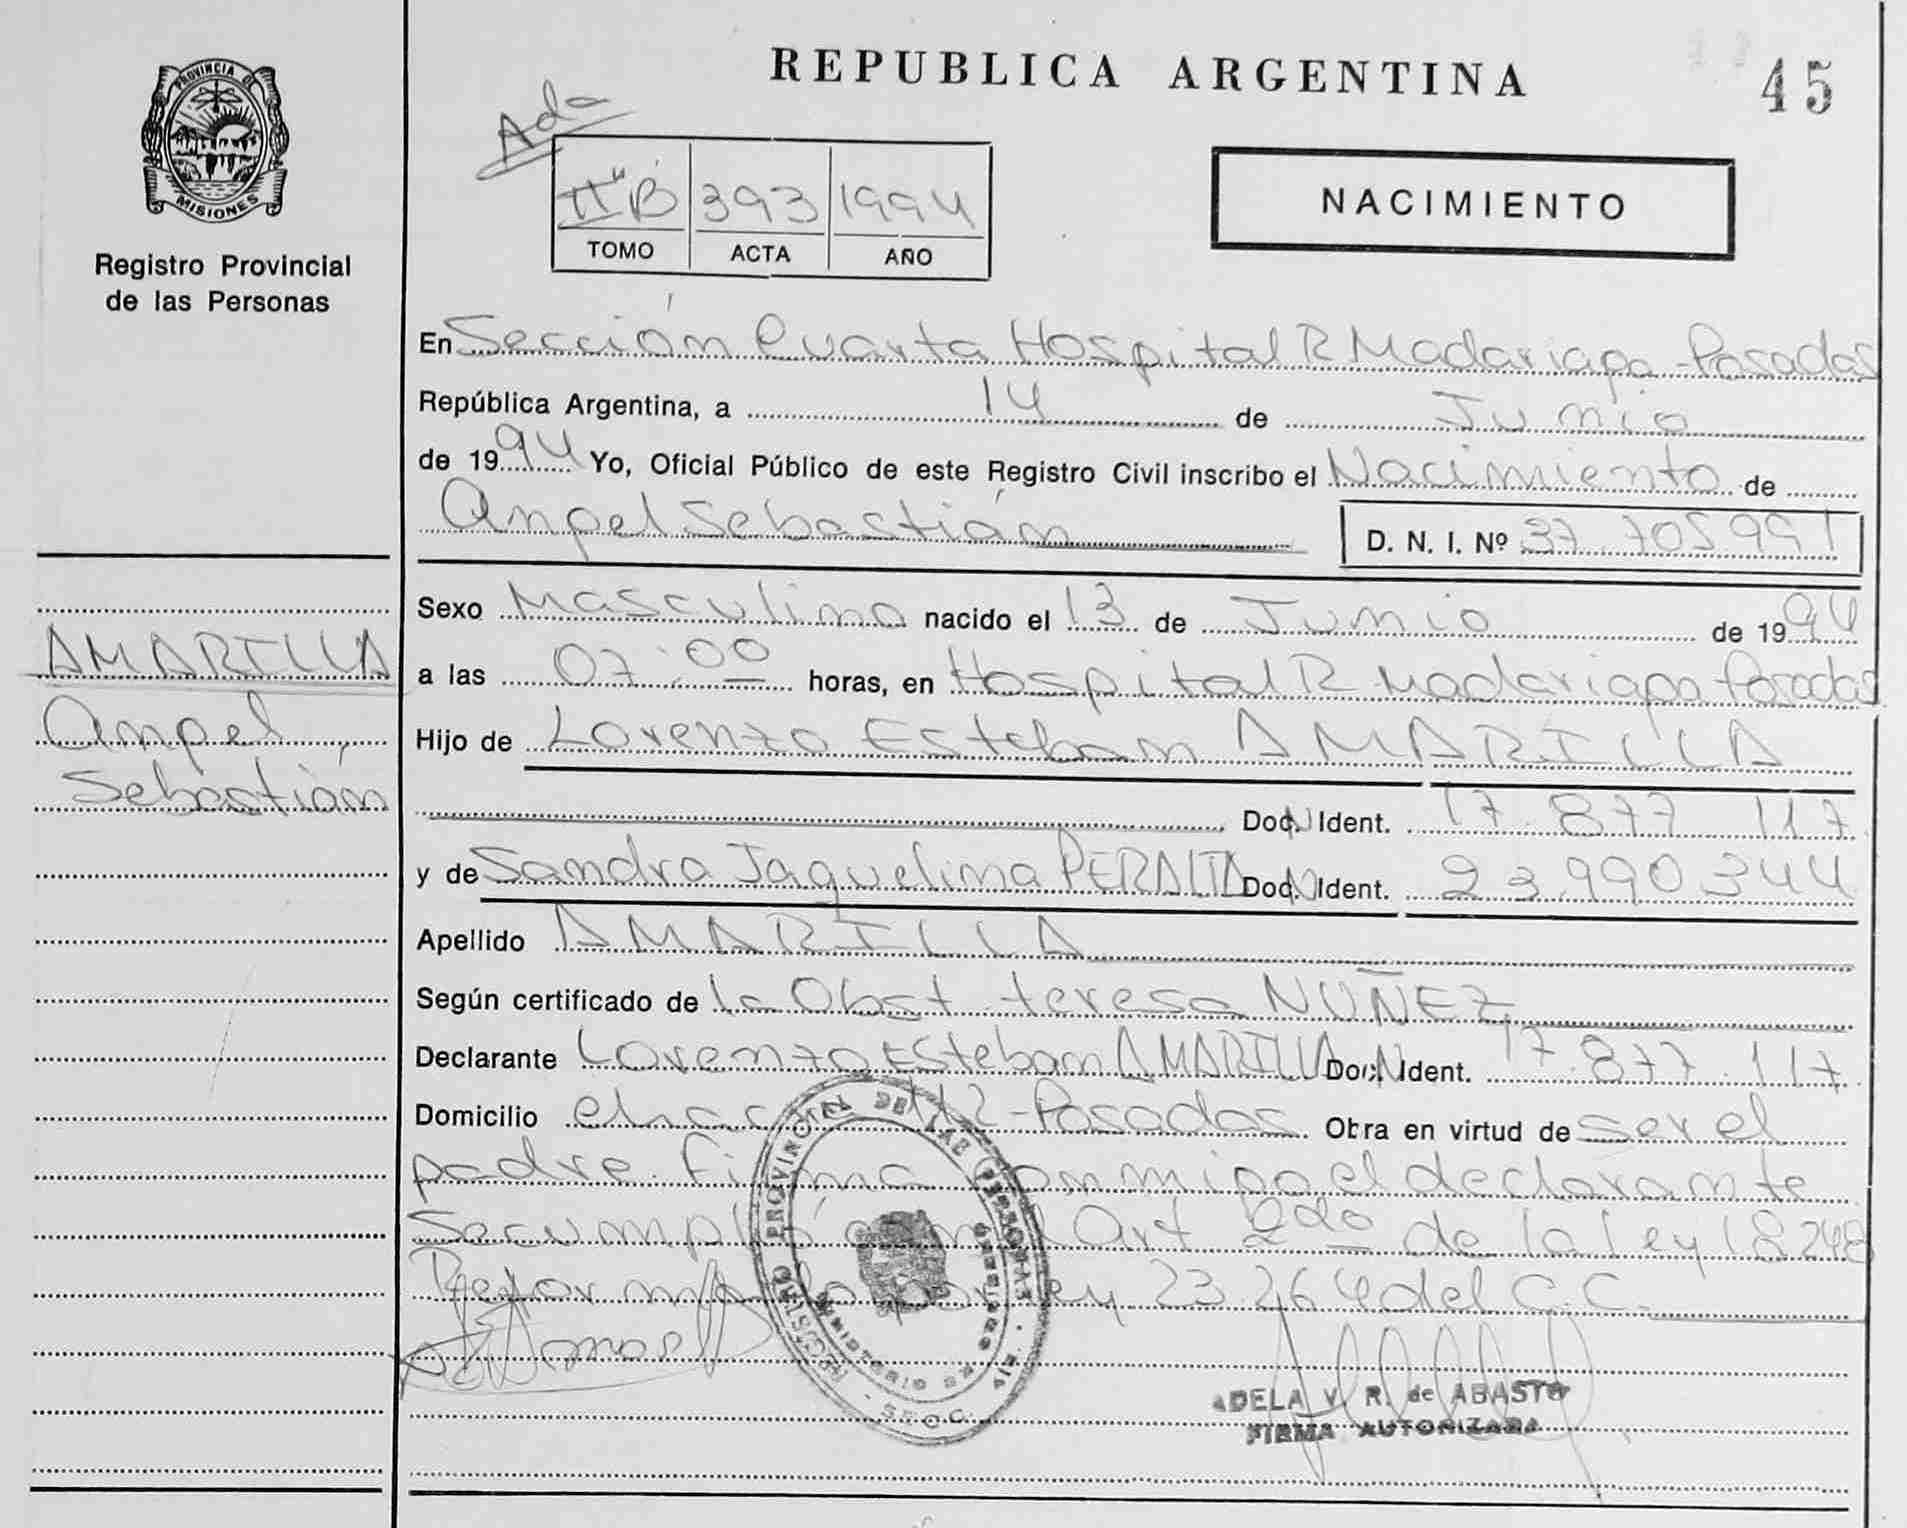 REPUBLICA ARGENTINA
45
PROVINCIA DE
MISIONES
Registro Provincial
de las Personas
Ada
II "B" 393 1994
TOMO ACTA AÑO
NACIMIENTO
En Sección Cuarta Hospital R Madariaga - Posadas
República Argentina, a 14 de Junio
de 1994 Yo, Oficial Público de este Registro Civil inscribo el Nacimiento de
Angel Sebastián D. N. I. Nº 37.705991
Sexo Masculino nacido el 13 de Junio de 1994
a las 07:00 horas, en Hospital R Madariaga Posadas
Hijo de Lorenzo Esteban AMARILLA
Doc. N Ident. 17.877.117
y de Sandra Jaquelina PERALTA Doc. N Ident. 23.990.344
Apellido AMARILLA
Según certificado de la Obst. teresa NUÑEZ
Declarante Lorenzo Esteban AMARILLA Doc. N Ident. 17.877.117
Domicilio 112 - Posadas Obra en virtud de ser el
padre. Firma conmigo el declarante
Se cumplió con el Art 2do de la ley 18248
Reforma por ley 23.264 del C.C.
AMARILLA
Angel
Sebastián
REGISTRO PROVINCIAL DE LAS PERSONAS
MINISTERIO DE GOBIERNO
ADELA V. R. de ABASTO
FIRMA AUTORIZADA